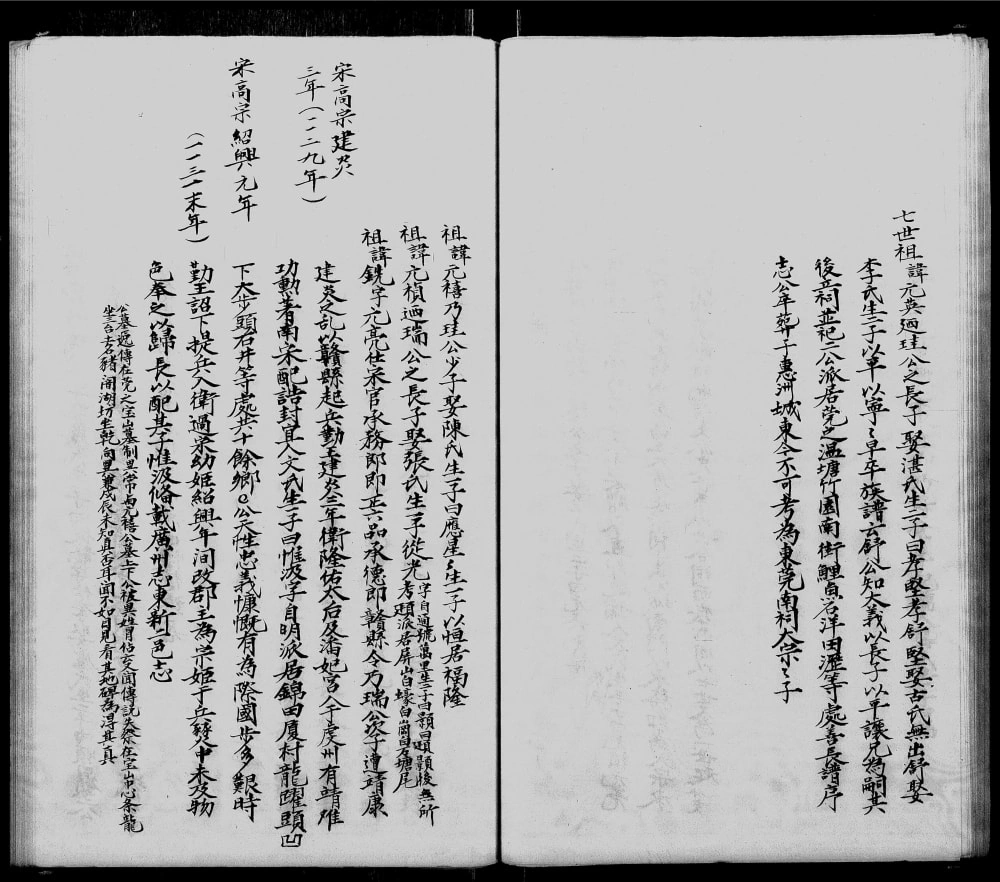 七世祖諱元英廼珪公之長子娶湛氏生二子曰孝堅孝舒堅娶古氏無出舒娶
李氏生二子以平以寧以平早卒族譜云舒公知大義以長子以平讓兄為嗣其
後立祠並祀二公派居莞之温塘竹園南街鯉魚石洋田瀝等處善長譜序
志公年葬于惠洲城東今不可考為東莞南祠大宗之子
祖諱元禧乃珪公少子娶陳氏生一子曰應星星生一子以恒居福隆
祖諱元禎廼瑞公之長子娶張氏生一子從光字自通號萬里生二子曰顥曰顯顥後無所
考顯派居屏山白壕白崗曰石塘尾
祖諱銑字元亮仕宋官承務郎即正八品承德郎贛縣令乃瑞公次子遭靖康
建炎之乱以贛縣起兵勤王建炎三年衛隆佑太后及潘妃宮人于虔州有靖难
功勳著南宋配誥封宜人文氏生一子曰惟汲字自明派居錦田厦村龍躍頭凹
下大步頭石井等處共十餘鄉公天性忠義慷慨有為際國步多艱時
勤王詔下提兵入衛過宗幼姬紹興年间改郡主為宗姬于兵發人中未及物
色奉之以歸長以配其子惟汲俻載廣州志東新二邑志
公墓遞傳在莞之宝山墓制異常与元禧公墓
坐合
宋高宗建炎
三年(一一二九年)
宋高宗紹興元年
(一一三一末年)